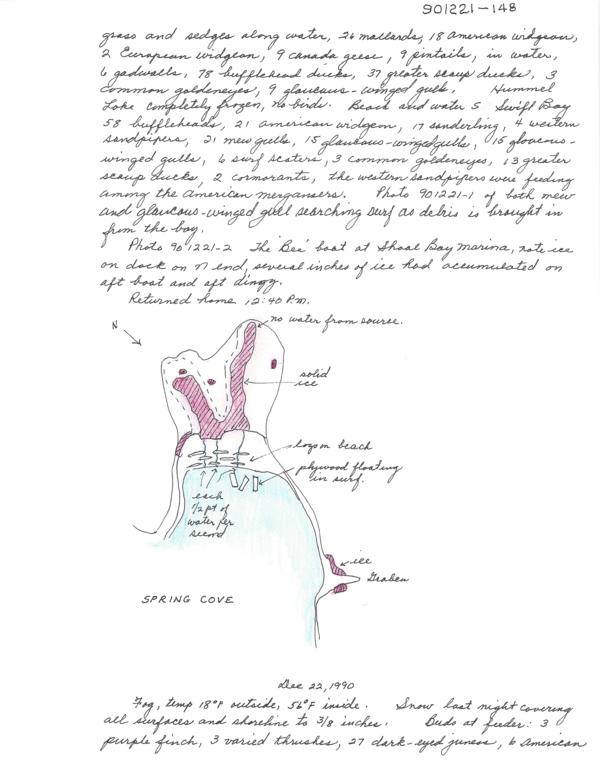 901221-148
grass and sedges along water, 26 mallards, 18 American widgeon,
2 European widgeon, 9 canada geese, 9 pintails, in water,
6 gadwalls, 78 bufflehead ducks, 37 greater scaup ducks, 3
common goldeneyes, 9 glaucous-winged gulls. Hummel
Lake completely frozen, no birds. Beach and water S Swift Bay
58 buffleheads, 21 american widgeon, 17 sanderling, 4 western
sandpipers, 21 mew gulls, 15 glaucous-winged gulls, 15 glaucous-
winged gulls, 6 surf scoters, 3 common goldeneyes, 13 greater
scaup ducks, 2 cormorants, the western sandpipers were feeding
among the American mergansers. Photo 901221-1 of both mew
and glaucous-winged gull searching surf as debris is brought in
from the bay.
Photo 901221-2 The 'Bee' boat at Shoal Bay Marina, note ice
on dock on N end, several inches of ice had accumulated on
aft boat and aft dingy.
Returned home 12:40 P.M.
N
no water from source.
solid
ice
logs on beach
plywood floating
in surf.
each
1/2 pt of
water per
second
ice
Graben
SPRING COVE
Dec 22, 1990
Fog, temp 18°F outside, 56°F inside. Snow last night covering
all surfaces and shoreline to 3/8 inches. Birds at feeder: 3
purple finch, 3 varied thrushes, 27 dark-eyed juncos, 6 American